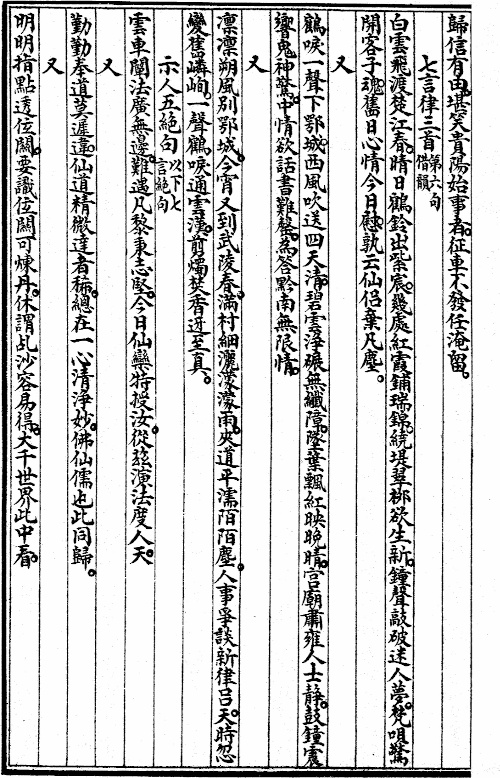 歸信有由。堪笑貴陽始事者。征車不發任淹留。
七言律三首第六句借韻
白雲飛渡楚江春。晴日鶴鈴出紫宸。幾處紅霞鋪瑞錦。繞堤翠柳欲生新。鐘聲敲破迷人夢。梵唄驚
開客子魂。舊日心情今日慰。孰云仙侶棄凡塵。
又
鶴唳一聲下鄂城。西風吹送四天清。碧雲淨碾無纖障。墜葉飄紅映晚晴。宮廟肅雍人士靜。鼓鐘震
響鬼神驚。中情欲話書難罄。為答黔南無限情。
又
凛凛朔風別鄂城。今宵又到武陵春。滿村細灑濛濛雨。夾道平濡陌陌塵。人事爭談新律呂。天時忽
變舊嶙峋。一聲鶴唳通雲漢。剪燭焚香迓至真。
示人五絕句以下七言絕句
雲車闡法廣無邊。難遇凡黎秉志堅。今日仙鸞特授汝。從兹演法度人天。
又
勤勤奉道莫遲違。仙道精微達者稀。總在一心清淨妙。佛仙儒也此同歸。
又
明明指點透位關。要識位關可煉丹。休謂乩沙容易得。大千世界此中看。